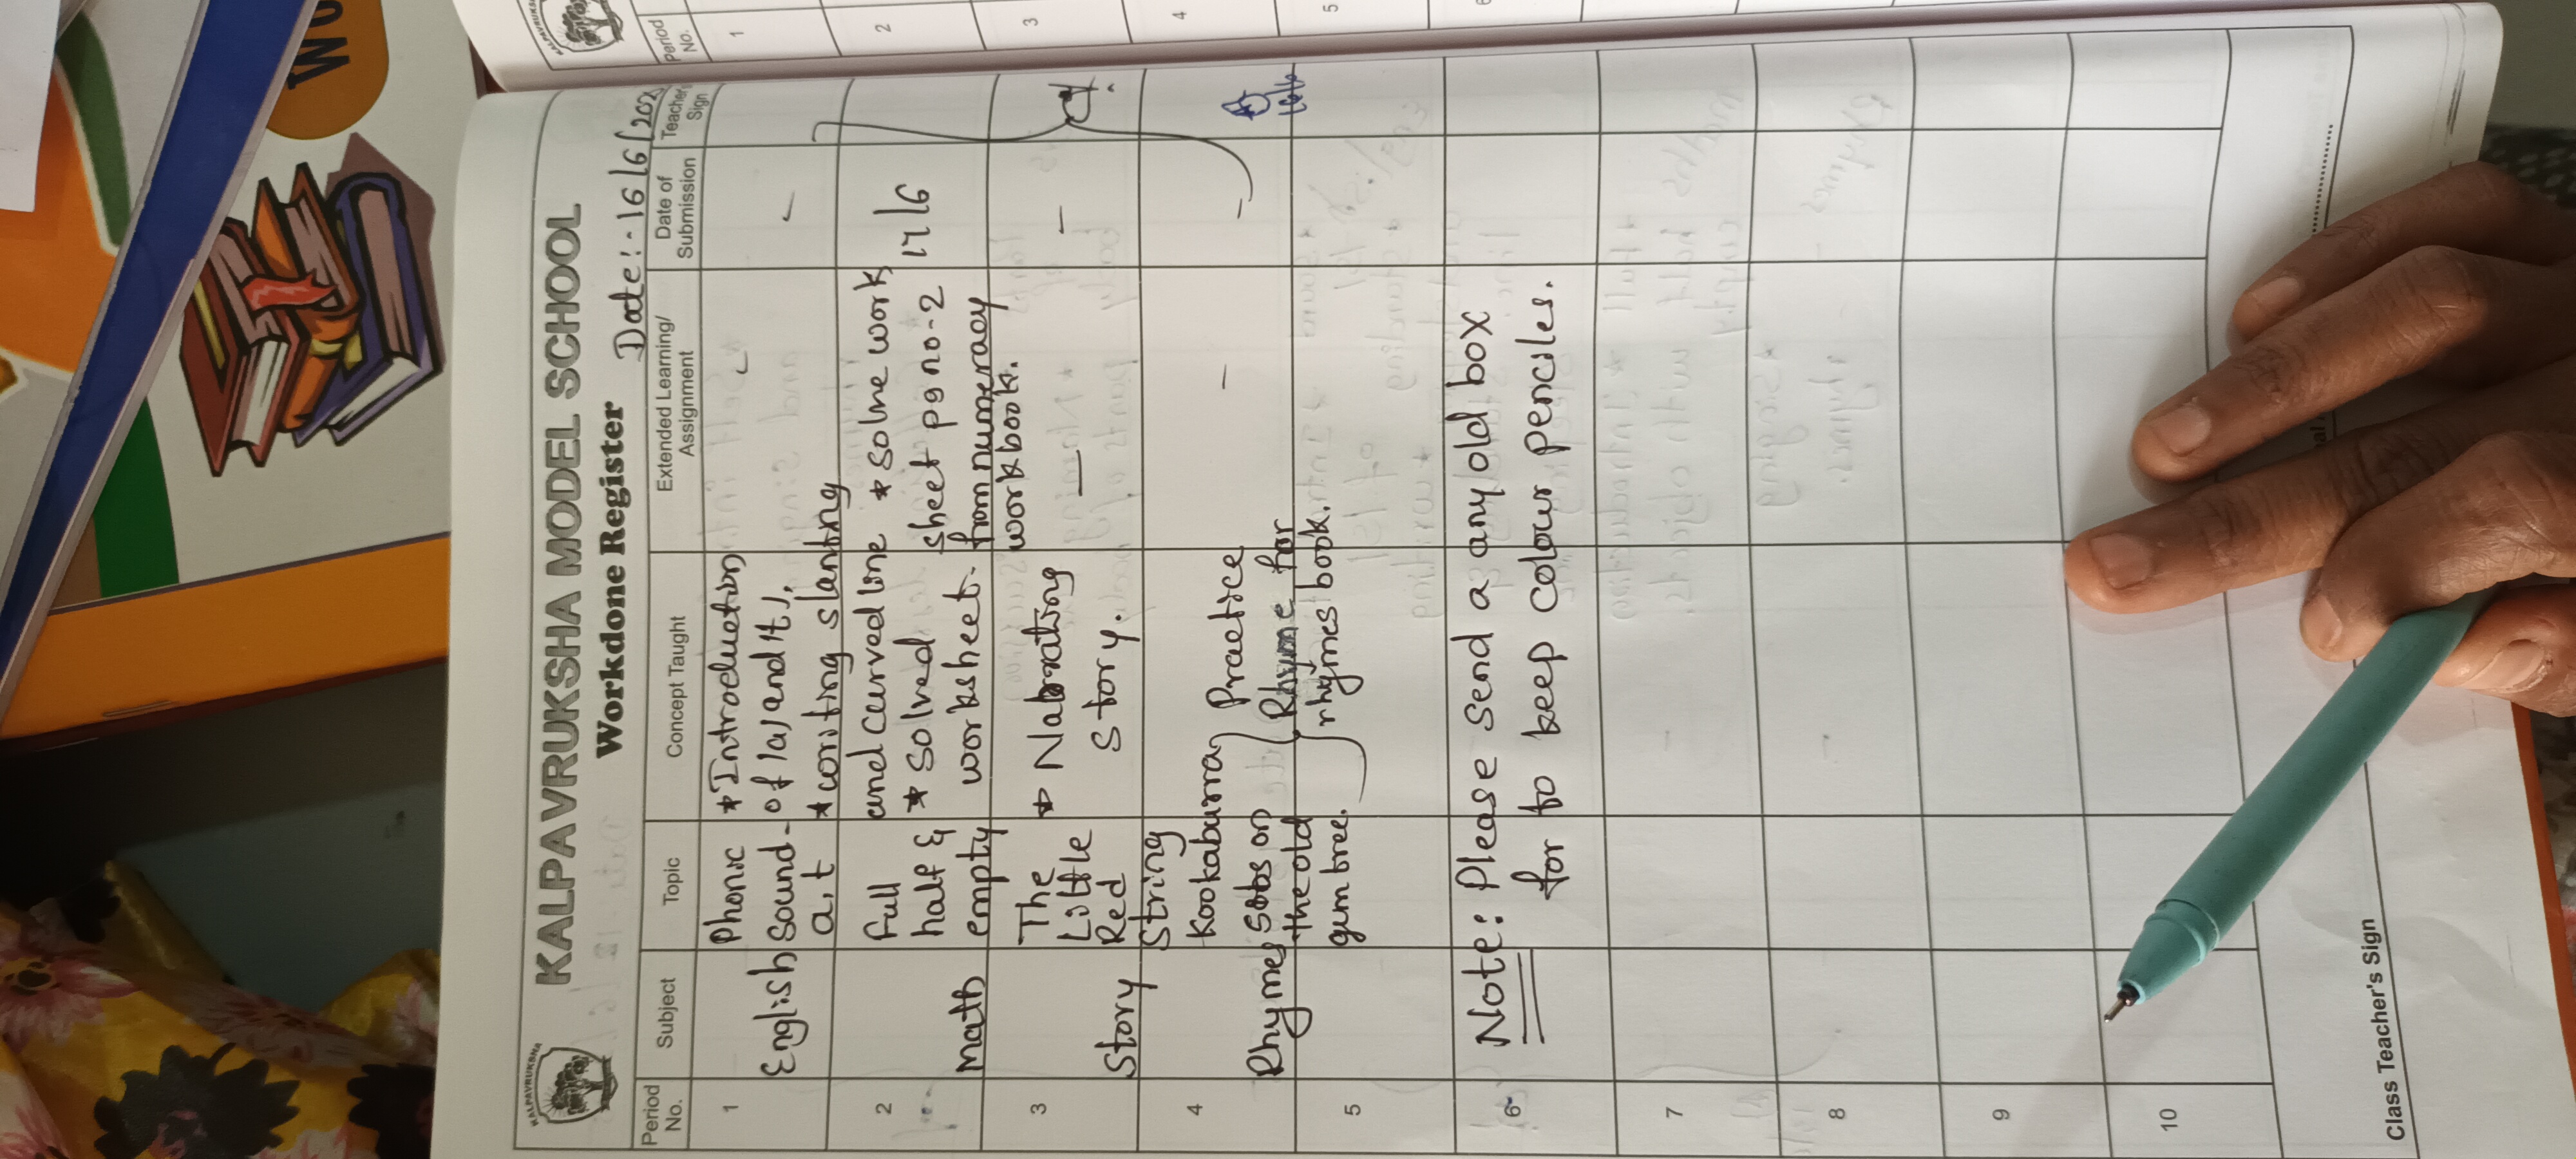 KALPAVRUKSHA
KALPAVRUKSHA MODEL SCHOOL
Workdone Register
Date:-16/6/202
Period No. Subject Topic Concept Taught Extended Learning/ Assignment Date of Submission Teacher's Sign
1 English Phonic Sound - a, t *Introduction of /a/ and /t/. *writing slanting and curved line - -
2 Math full half & empty * solved worksheet. * Solve work sheet pg no-2 from numeracy workbook. 17/6
3 Story The Little Red String * Nabrating story. - -
4 Rhymes Kookaburra sobs on the old gum tree. Practice Rhyme for rhymes book. - -
16/6
5
6 Note: Please send a any old box
for to keep colour penciles.
7
8
9
10
Class Teacher's Sign
Period No.
1
2
3
4
5
WO